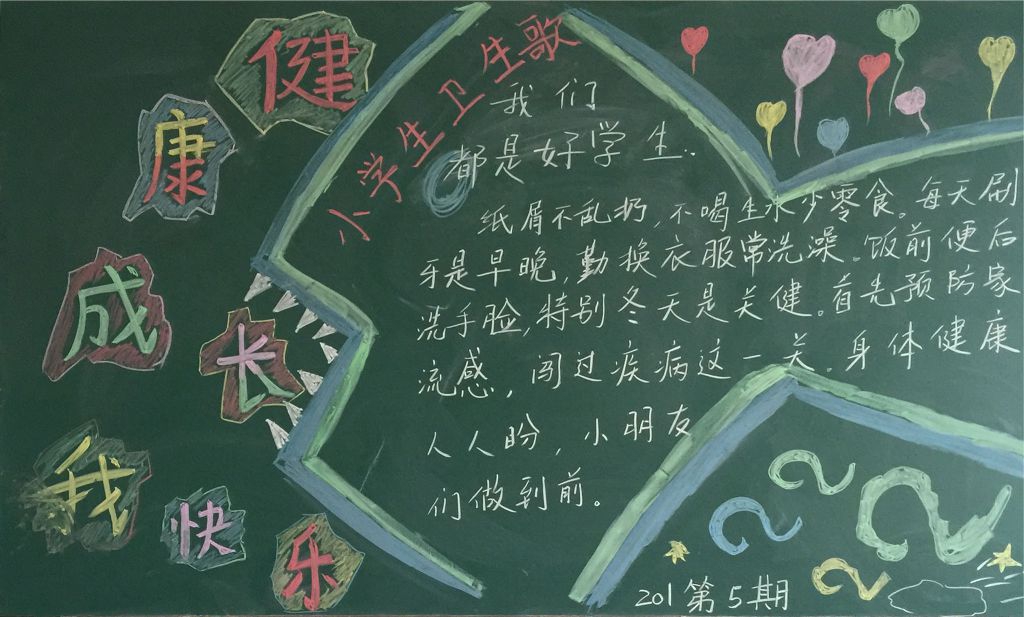 健康成长我快乐
小学生卫生歌
我们
都是好学生.
纸屑不乱扔,不喝生水少零食。每天刷
牙是早晚,勤换衣服常洗澡。饭前便后
洗手脸,特别冬天是关健。首先预防家
流感,闯过疾病这一关。身体健康
人人盼,小朋友
们做到前。
201第5期